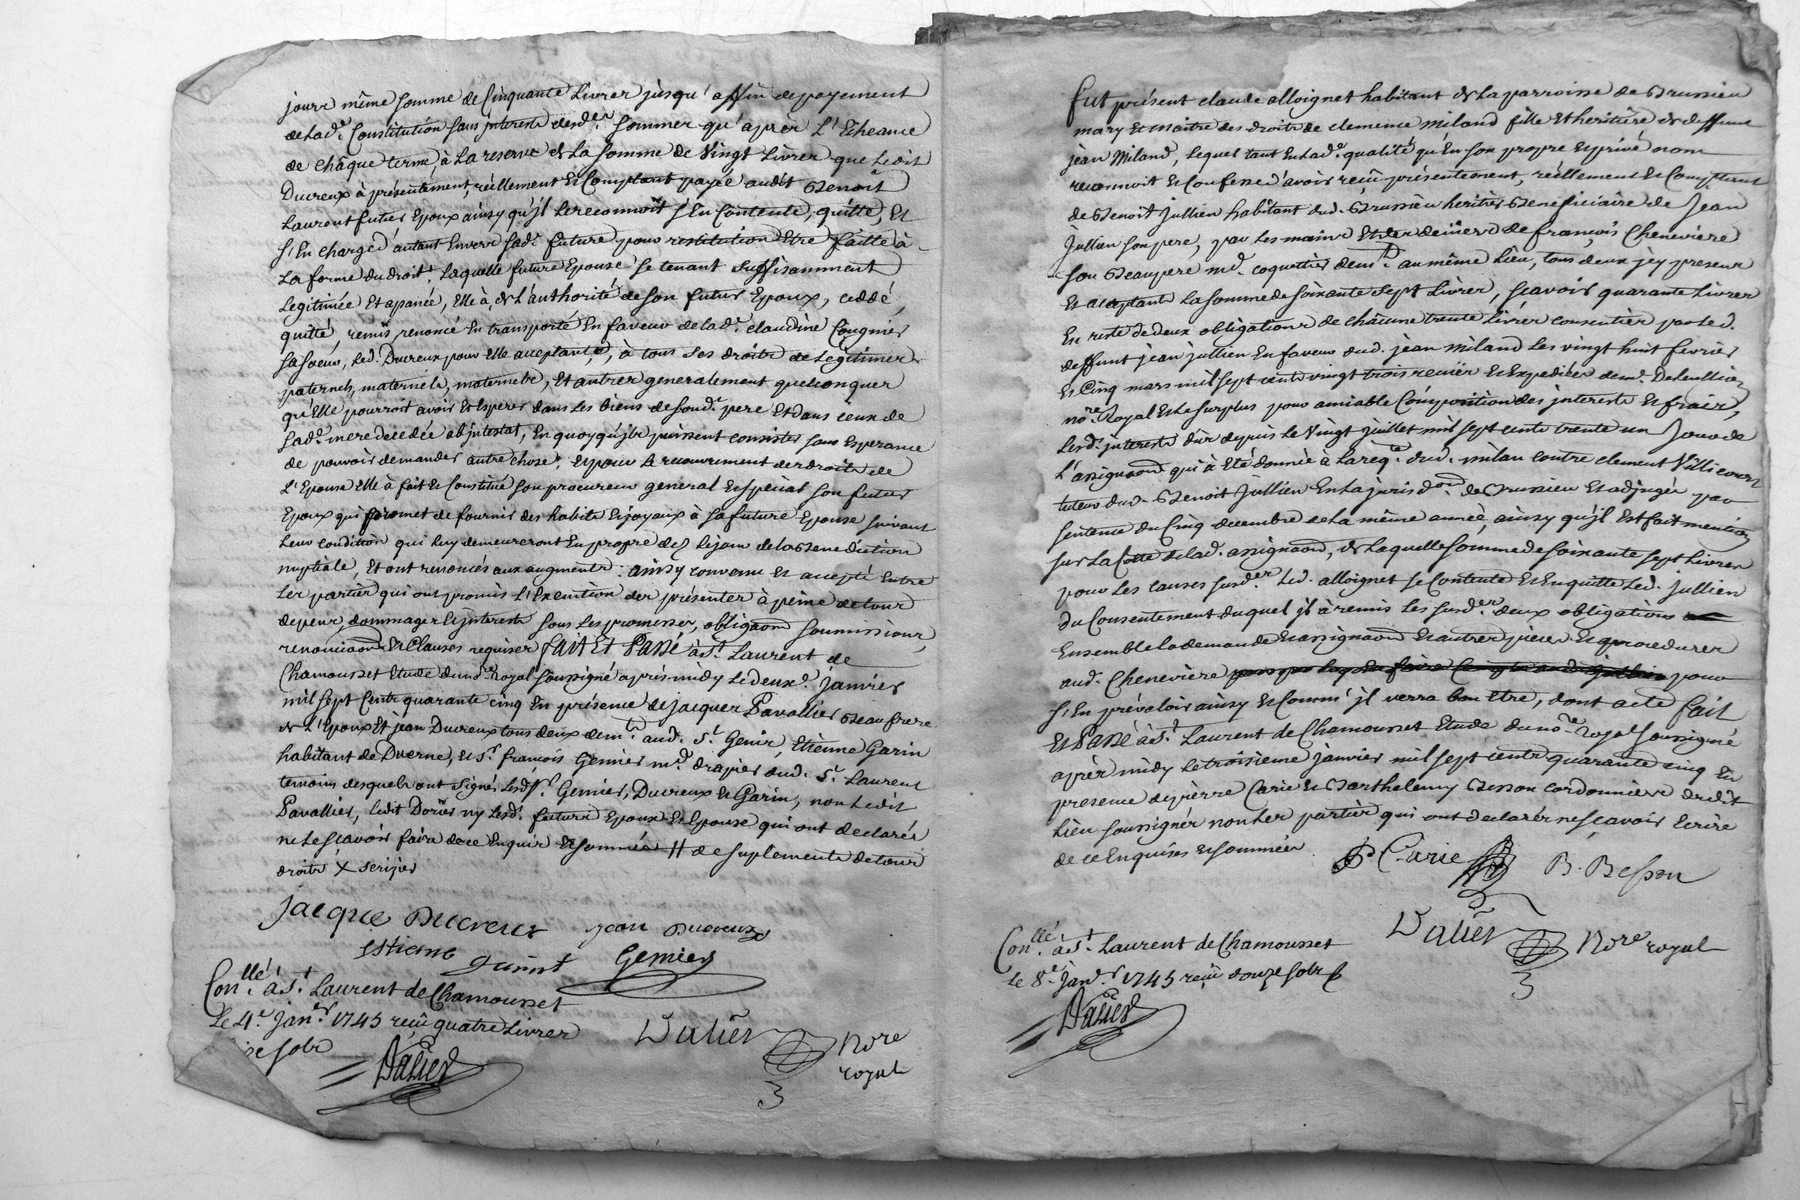 jours même somme de Cinquante Livres jusqu'affin de payement
de lad.e Constitution sans jnterests desd.es sommes qu'après L'Echeance
de châque terme, à La reserve de La somme de Vingt Livres que Ledit
Ducreux à présentement, réellement et Comptant payé audit Benoit
Laurent futur Epoux ainsy qu'jl Le reconnoit s'En Contente, quitte, Et
s'En charge d'autant Envers sad.e future pour restitution Etre faitte à
La forme du droit, Laquelle future Epouse se tenant suffisamment
Legitimée Et apanée, Elle à de L'authorité de son futur Epoux, ceddé,
quitté, remis, renoncé En transporté En faveur de lad.e claudine Cougnier
sa soeur, Led. Ducreux pour Elle acceptant, à tous ses droits de Legitimes
paternels, maternels, Et autres generalement quelconques
qu'Elle pourroit avoir Et Esperer dans Les biens de sond. pere Et dans ceux de
Lad.e mere decedée abjntestat, En quoy qu'jls puissent consister sans Esperance
de pouvoir demander autre chose, Et pour Le recouvrement des droits de
L'Epouse Elle à fait et Constitué son procureur general Et special son futur
Epoux qui promet de fournir des habits Et joyaux à sa future Epouse suivant
Leur condition qui Luy demeureront En propre dez Le jour de la Benediction
nuptiale, Et ont renoncés aux augments: ainsy convenu Et accepté Entre
Les parties qui ont promis L'Execution des présentes à peine de tous
depens, dommages Et jnterests sous Les promesses, obligaõns soumissions,
renonciaõns Et Clauses requises fait Et Passé à St. Laurent de
Chamousset Etude du no.re Royal soussigné après midy Le deux.e Janvier
mil sept Cents quarante cinq En présence de jacques Pavallier Beaufrere
de L'Epoux Et jean Ducreux tous deux dem.ts aud. St. Genis, Etienne Garin
habitant de Duerne, Et Sr. françois Gemier m.d drapier dud. St. Laurent
temoins desquels ont signés Lesd. Srs. Gemier, Ducreux Et Garin, non Ledit
Pavallier, Ledit ny Lesd. futurs Epoux Et Epouse qui ont declarés
ne Le sçavoir faire de ce Enquis Et sommés // de suplements de tous
droits X
Jacque Ducreux jean Ducreux
Estiene garint Gemier
Con.llé à St. Laurent de Chamousset
Le 4.e Jan.er 1745 reçû quatre Livres
sols
Dalier
Dalier Nore
royal
fut présent claude alloignet habitant de La parroisse de Brussieu
mary Et maitre des droits de clemence Miland fille Et heritiere de deffunt
jean Miland, Lequel tant En Lad.e qualité qu'En son propre Et privé nom
reconnoit Et Confesse d'avoir reçû présentement, réellement Et Comptant
de Benoit Jullien habitant dud. Brussieu heritier Beneficiaire de Jean
Jullien son pere, par Les mains Et des deniers de françois Cheneviere
son Beaupere m.d coquettier dem.t au même Lieu, tous deux jcy present
Et acceptants La somme de soixante sept Livres, sçavoir quarante Livres
En reste de deux obligations de châcune trente Livres consenties par Led.
deffunt jean jullien En faveur dud. jean Miland Les vingt huit fevrier
Et Cinq mars mil sept cents vingt trois reçües Et Expediées de m.e
no.re Royal Et Le surplus pour amiable Composition des jnterests Et frais,
Lesd. jnterests dûs depuis Le Vingt juillet mil sept cents trente un Jour de
L'assignaõn qui à Eté donnée à La req.te dud. milan contre clement Villecourt
tuteur dud. Benoit Jullien En La jurisd.on de Brussieu Et adjugés par
sentence du Cinq decembre de La même année, ainsy qu'jl Est fait mention
sur La Cotte de Lad. assignaõn, de Laquelle somme de soixante sept Livres
pour Les causes susd.es Led. alloignet se Contente Et En quitte Led. Jullien
du Consentement duquel jl à remis Les susd.es deux obligations
Ensemble La demande Et assignaõn Et autres pieces Et procedures
aud. Cheneviere pour
s'En prévaloir ainsy Et Comme jl verra bon Etre, dont acte fait
Et Passé à St. Laurent de Chamousset Etude du no.re Royal soussigné
après midy Le troisieme janvier mil sept cents quarante cinq En
presence de pierre Carie Et Barthelemy Besson cordonniers dudit
Lieu soussignés non Les parties qui ont declarés ne sçavoir Ecrire
de ce Enquises Et sommées
P Carie B. Besson
Dalier Nore royal
Con.llé à St. Laurent de Chamousset
Le 8.e Jan.er 1745 reçû douze sols
Dalier